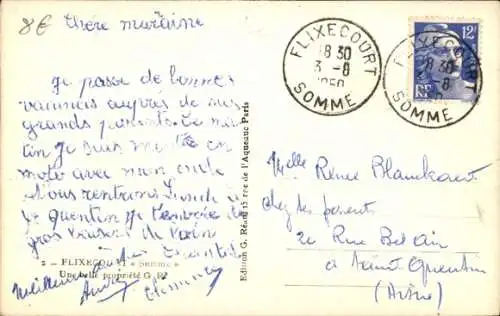 8€ Chère marraine
Je passe de bonnes
vacances auprès de mes
grands parents. Ce ma
tin je suis montée en
moto avec mon oncle
Nous rentrons Lundi à
St Quentin Je t'envoie de
gros baisers de loin
2 - FLIXECOURT « Somme »
Une belle propriété G. Rd
Meilleurs
Edition G. Réant 15 rue de l'Aqueduc Paris
FLIXECOURT
18 30
3 -8
1950
SOMME
12F
RF
FLIXECOURT
18 30
8
SOMME
Melle Renee Blanckaert
chez ses parents
20 Rue Bel Air
à Saint Quentin
(Aisne)